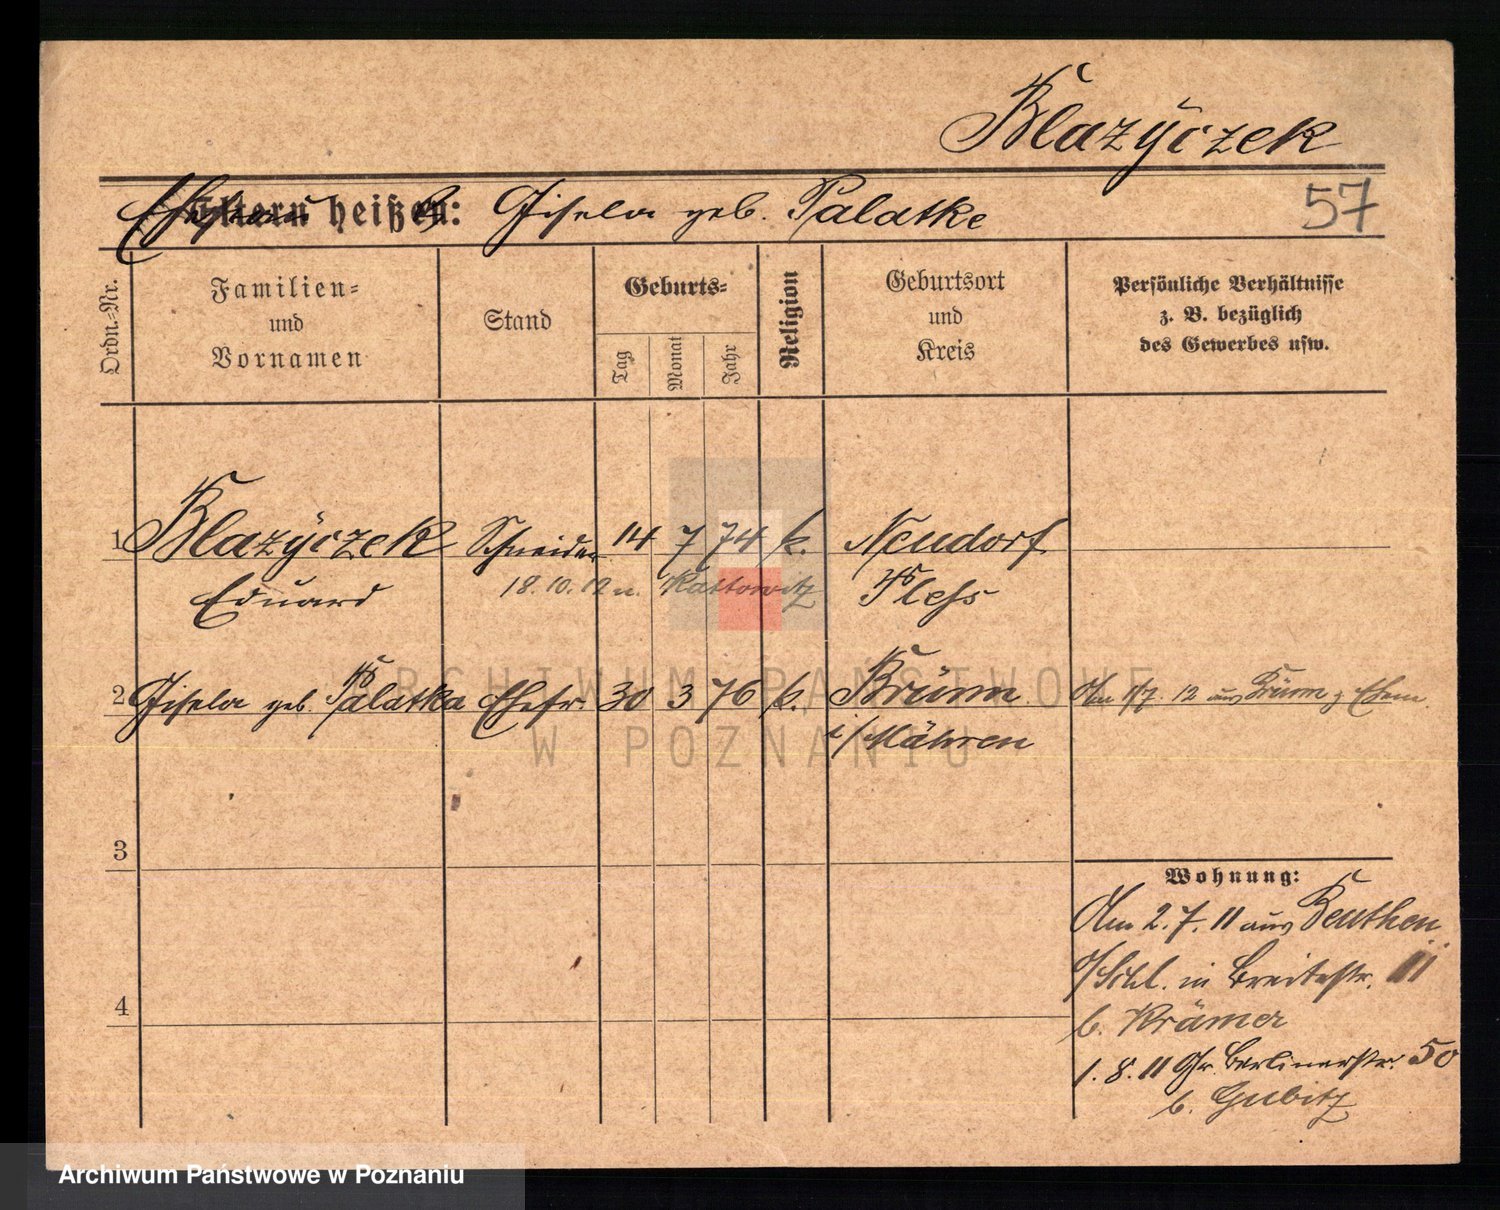 Blazÿczek
Eltern heißen: Gisela geb. Palatke
57
Ordn.=Nr.
Familien=
und
Vornamen
Stand
Geburts=
Tag
Monat
Jahr
Religion
Geburtsort
und
Kreis
Persönliche Verhältnisse
z. B. bezüglich
des Gewerbes usw.
1 Blazÿczek Schneider 14 7 74 k. Neudorf
Eduard 18.10.12 n. Kattowitz Pless
2 Gisela geb. Palatka Ehefr. 30 3 76 k. Brünn Am 1/7. 12 aus Brünn z. Ehem.
i/Mähren
3
Wohnung:
Am 2.7.11 aus Beuthen
o/Schl. in Breitestr. 11
b. Krämer
4
1.8.11 Gr. Berlinerstr. 50
b. Gubitz
ARCHIWUM PAŃSTWOWE
W POZNANIU
Archiwum Państwowe w Poznaniu